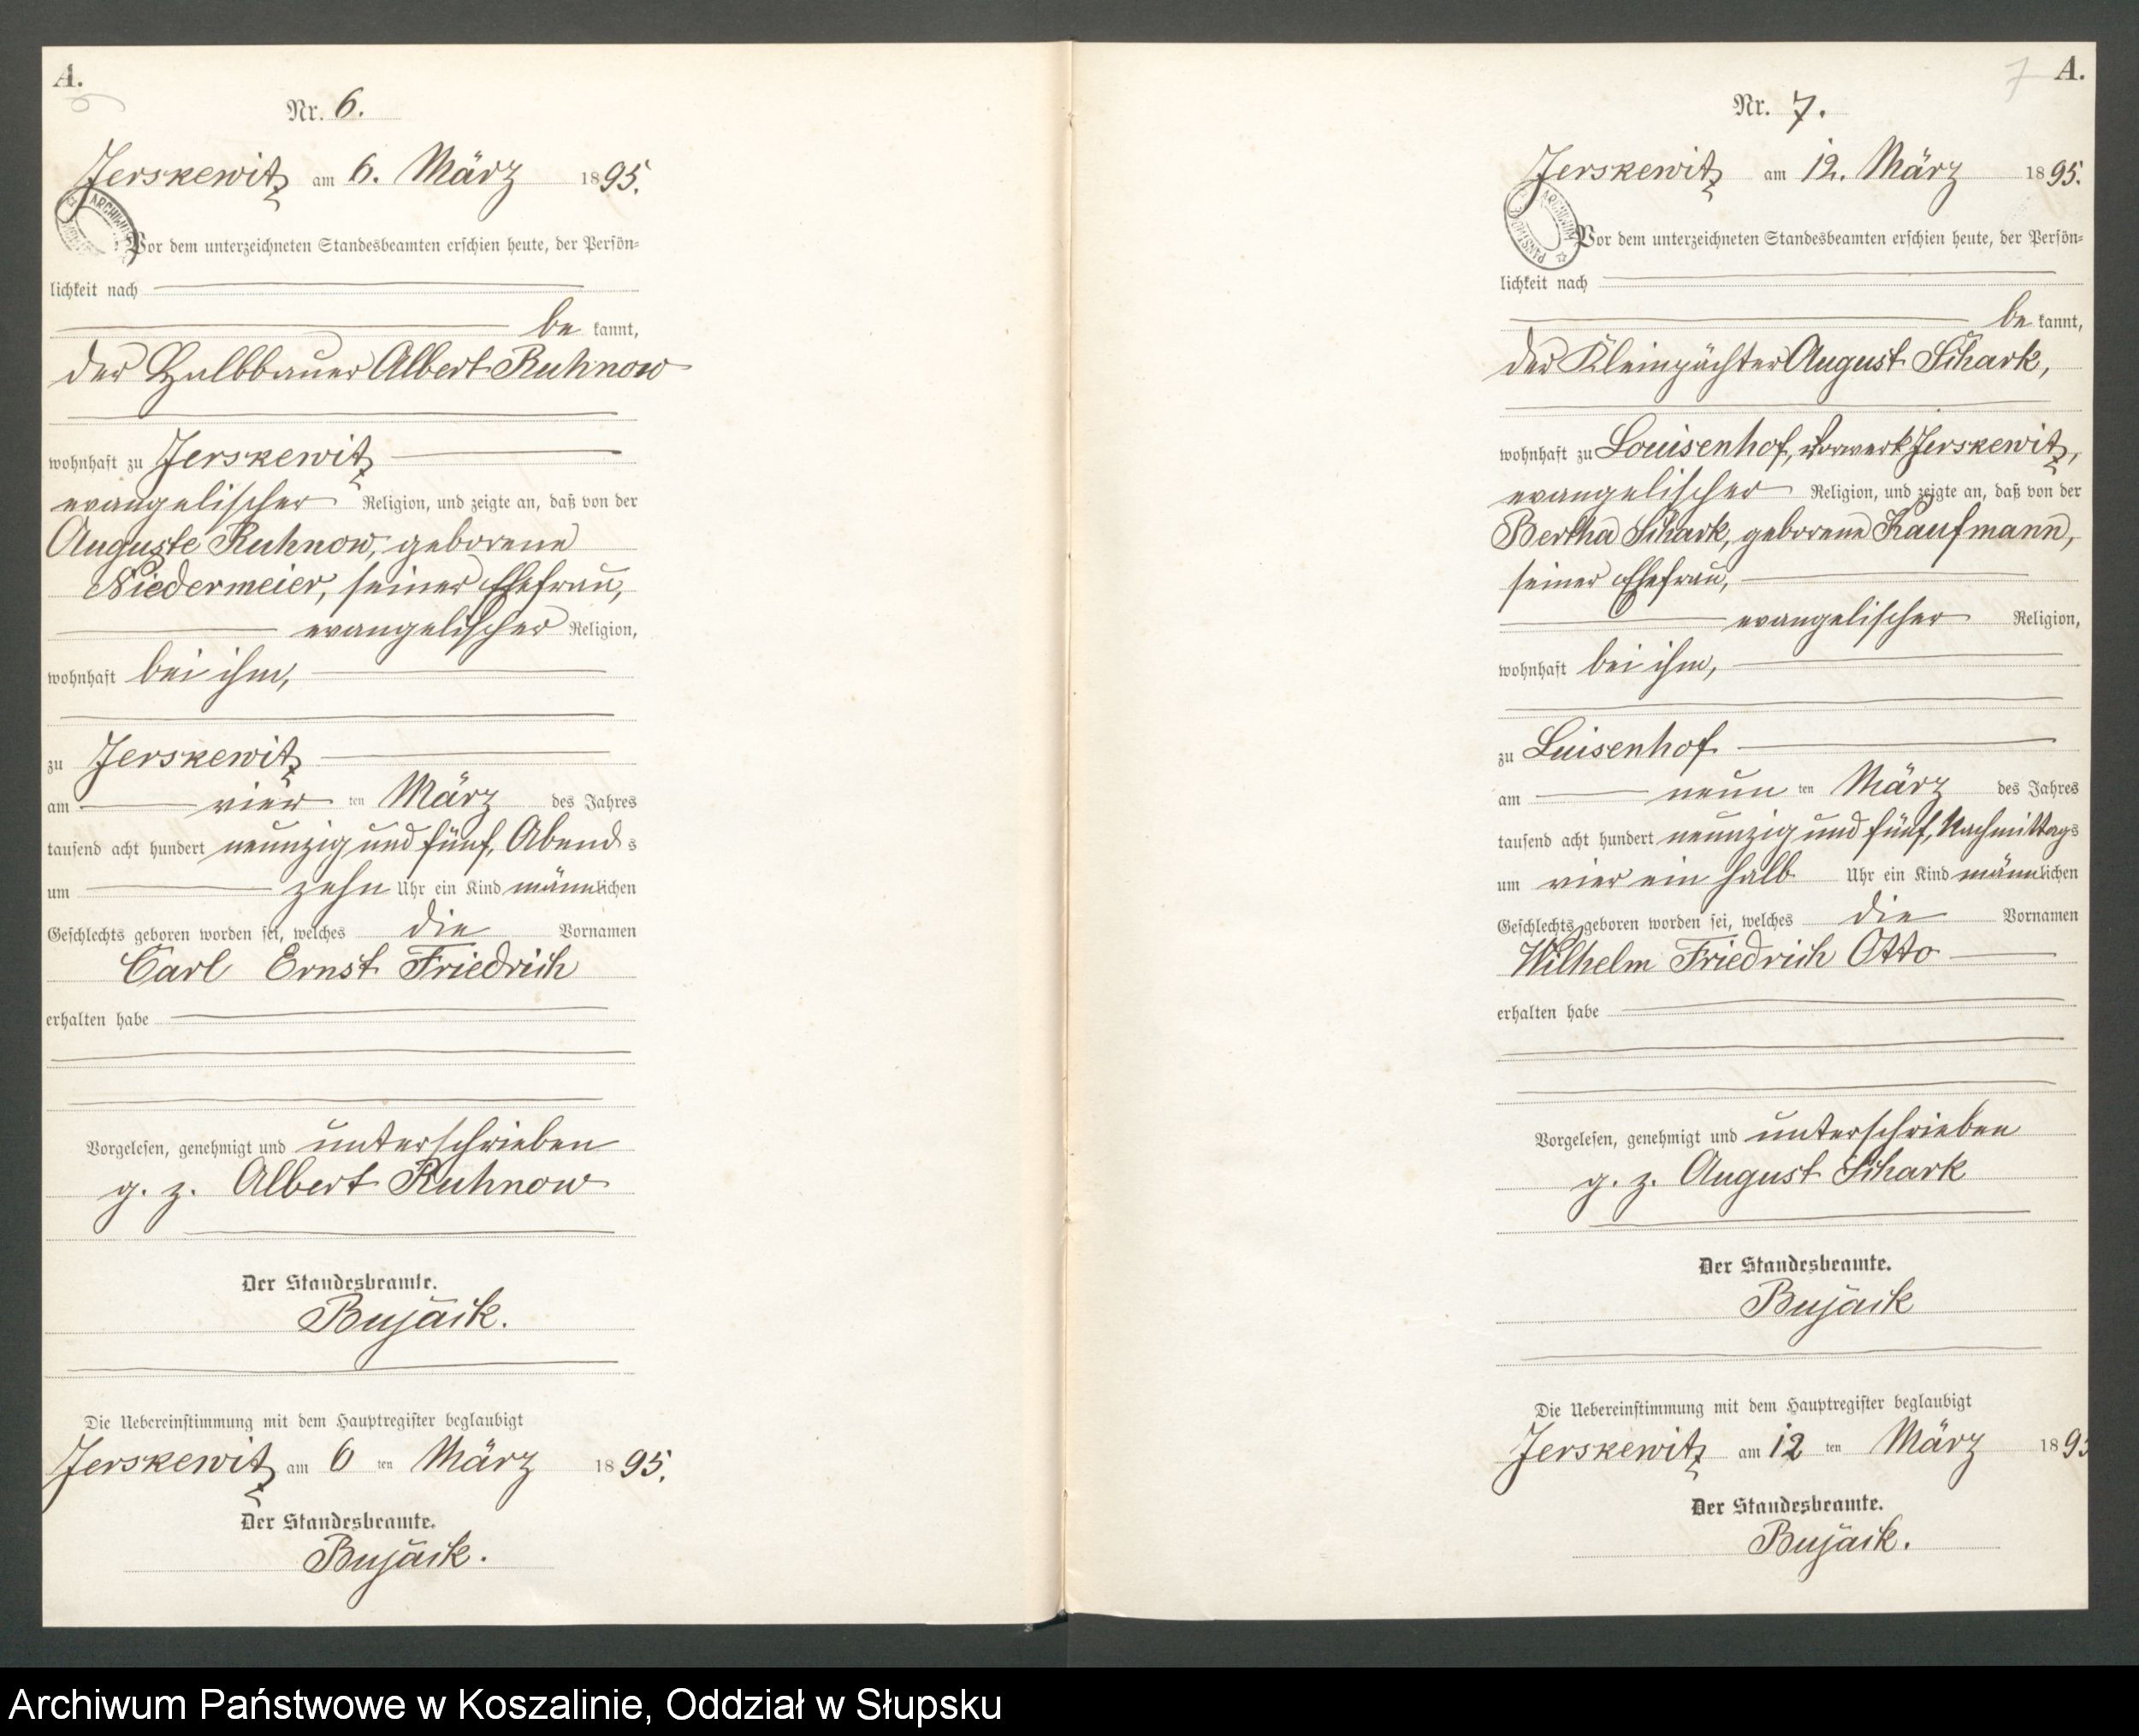 A.
Nr. 6.
Jerskewitz am 6. März 1895.
Vor dem unterzeichneten Standesbeamten erschien heute, der Persön-
lichkeit nach
be kannt,
der Halbbauer Albert Ruhnow
wohnhaft zu Jerskewitz
evangelischer Religion, und zeigte an, daß von der
Auguste Ruhnow, geborene
Niedermeier, seiner Ehefrau,
evangelischer Religion,
wohnhaft bei ihm,
zu Jerskewitz
am vier ten März des Jahres
tausend acht hundert neunzig und fünf, Abends
um zehn Uhr ein Kind männlichen
Geschlechts geboren worden sei, welches die Vornamen
Carl Ernst Friedrich
erhalten habe
Vorgelesen, genehmigt und unterschrieben
g. z. Albert Ruhnow
Der Standesbeamte.
Bujack.
Die Uebereinstimmung mit dem Hauptregister beglaubigt
Jerskewitz am 6 ten März 1895.
Der Standesbeamte.
Bujack.
7 A.
Nr. 7.
Jerskewitz am 12. März 1895.
Vor dem unterzeichneten Standesbeamten erschien heute, der Persön-
lichkeit nach
be kannt,
der Kleinpächter August Schark,
wohnhaft zu Louisenhof, Vorwerk Jerskewitz,
evangelischer Religion, und zeigte an, daß von der
Bertha Schark, geborene Kaufmann,
seiner Ehefrau,
evangelischer Religion,
wohnhaft bei ihm,
zu Luisenhof
am neun ten März des Jahres
tausend acht hundert neunzig und fünf, Nachmittags
um vier ein halb Uhr ein Kind männlichen
Geschlechts geboren worden sei, welches die Vornamen
Wilhelm Friedrich Otto
erhalten habe
Vorgelesen, genehmigt und unterschrieben
g. z. August Schark
Der Standesbeamte.
Bujack
Die Uebereinstimmung mit dem Hauptregister beglaubigt
Jerskewitz am 12 ten März 1895
Der Standesbeamte.
Bujack.
Archiwum Państwowe w Koszalinie, Oddział w Słupsku